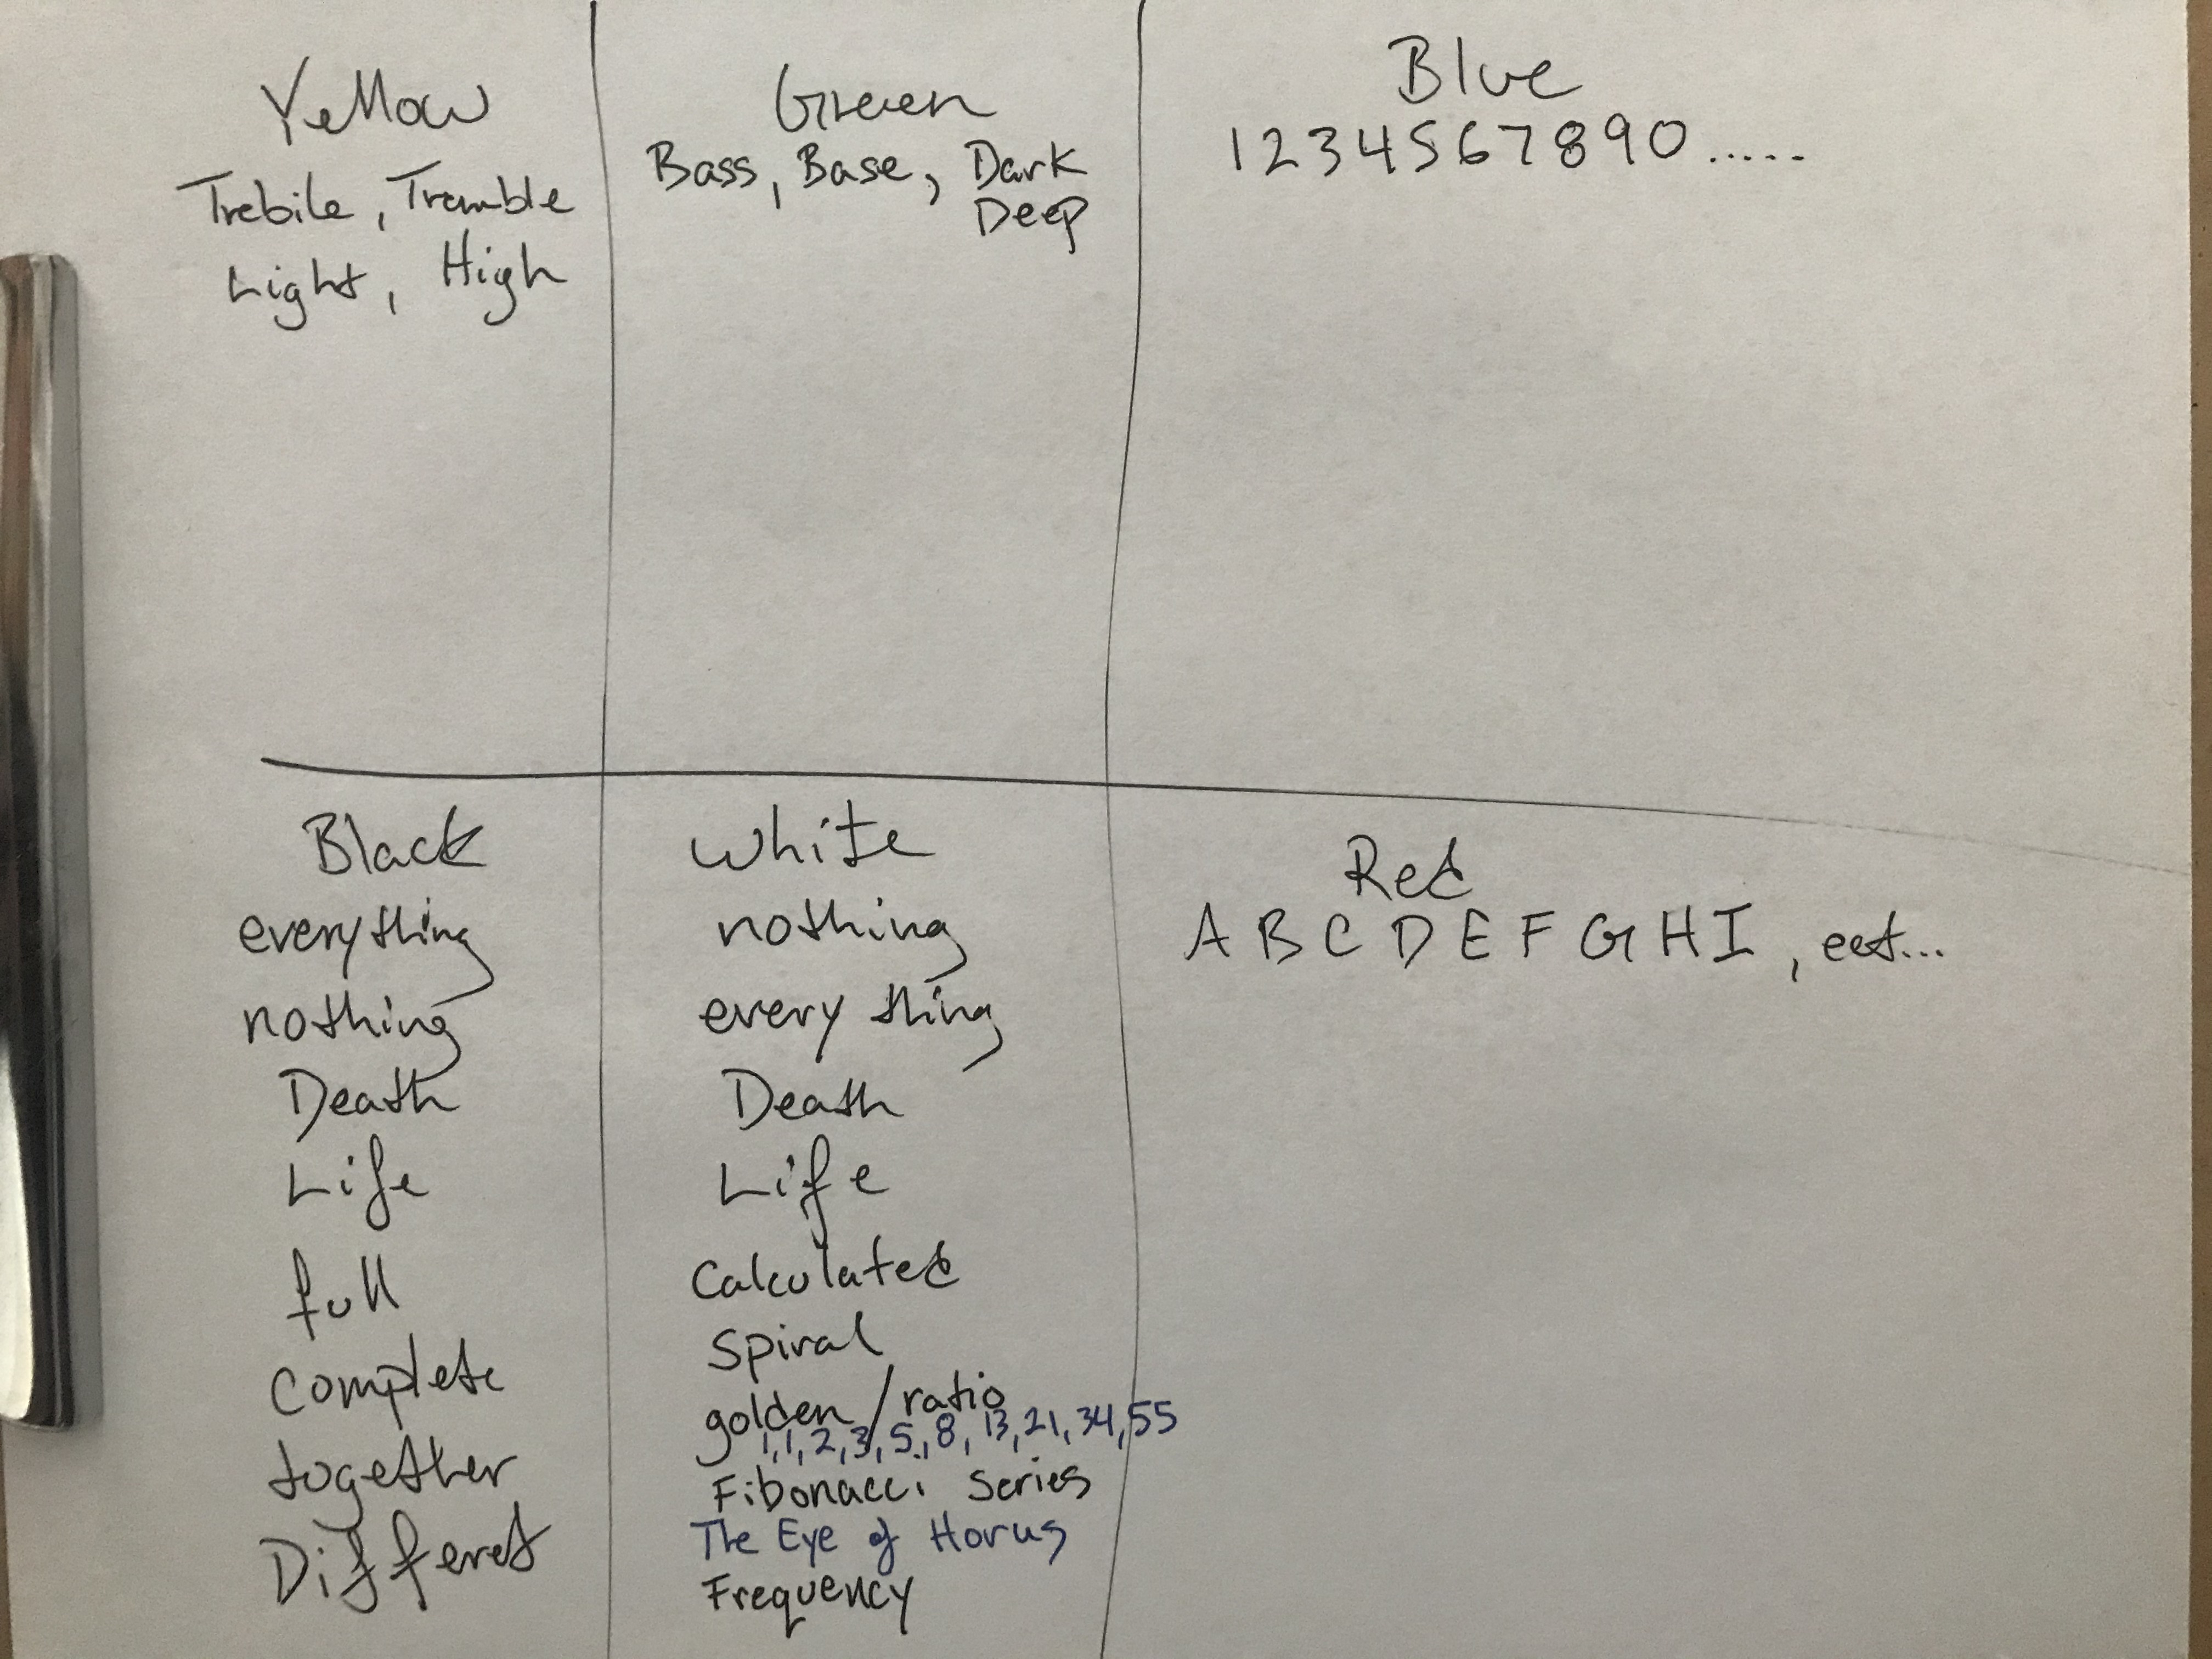 Yellow
Trebile, Tremble
Light, High
Green
Bass, Base, Dark
Deep
Blue
1234567890.....
Black
everything
nothing
Death
Life
full
Complete
together
Different
White
nothing
everything
Death
Life
Calculated
Spiral
golden/ratio
1,1,2,3,5,8,13,21,34,55
Fibonacci Series
The Eye of Horus
Frequency
Red
A B C D E F G H I, ect...